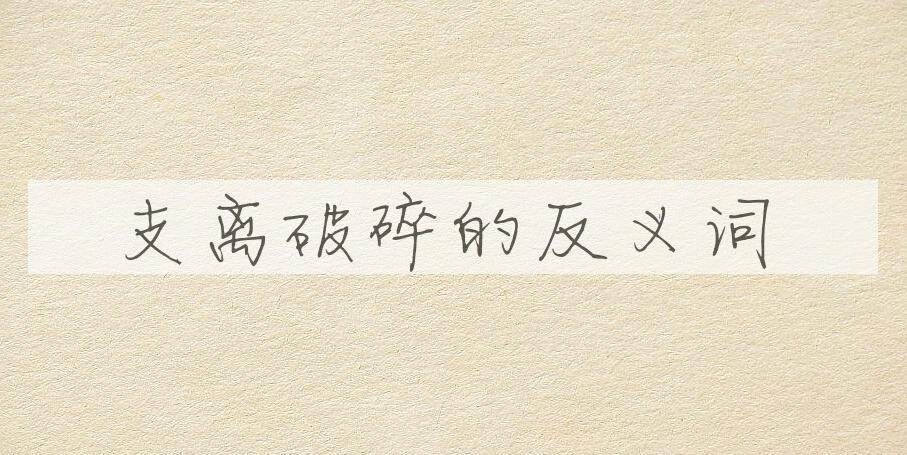 支离破碎的反义词